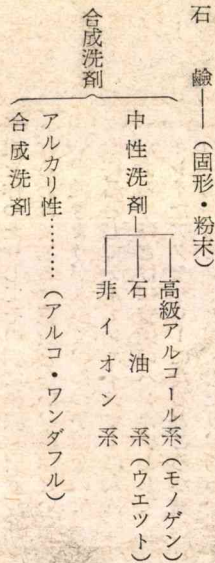 石鹼——(固形・粉末)
合成洗剤
中性洗剤
高級アルコール系(モノゲン)
石油系(ウエツト)
非イオン系
アルカリ性………(アルコ・ワンダフル)
合成洗剤